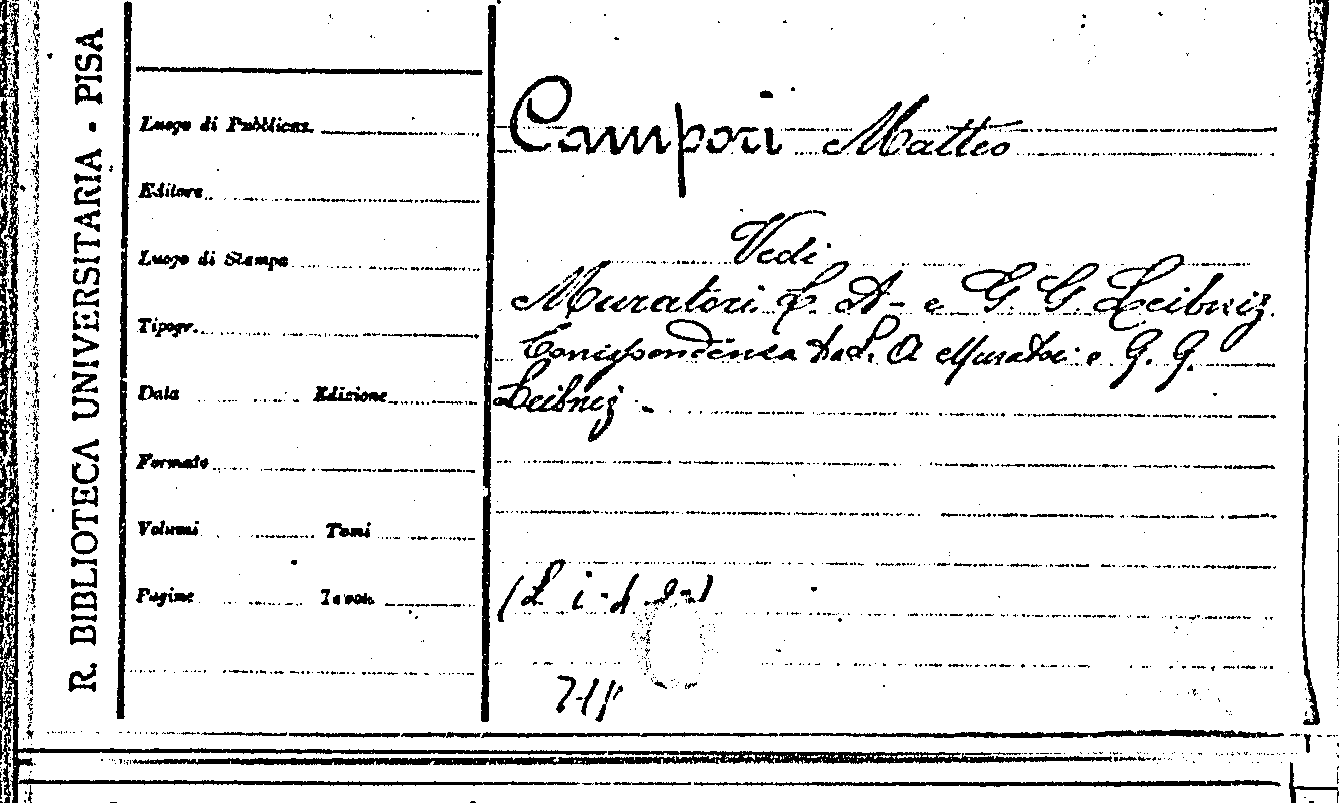 R. BIBLIOTECA UNIVERSITARIA - PISA
Luogo di Pubblicaz.
Editore
Luogo di Stampa
Tipogr.
Data Edizione
Formato
Volumi Tomi
Pagine Tavole
Campori Matteo
Vedi
Muratori L. A- e G. G. Leibniz
Corrispondenza tra L. A Muratori e G. G.
Leibniz -